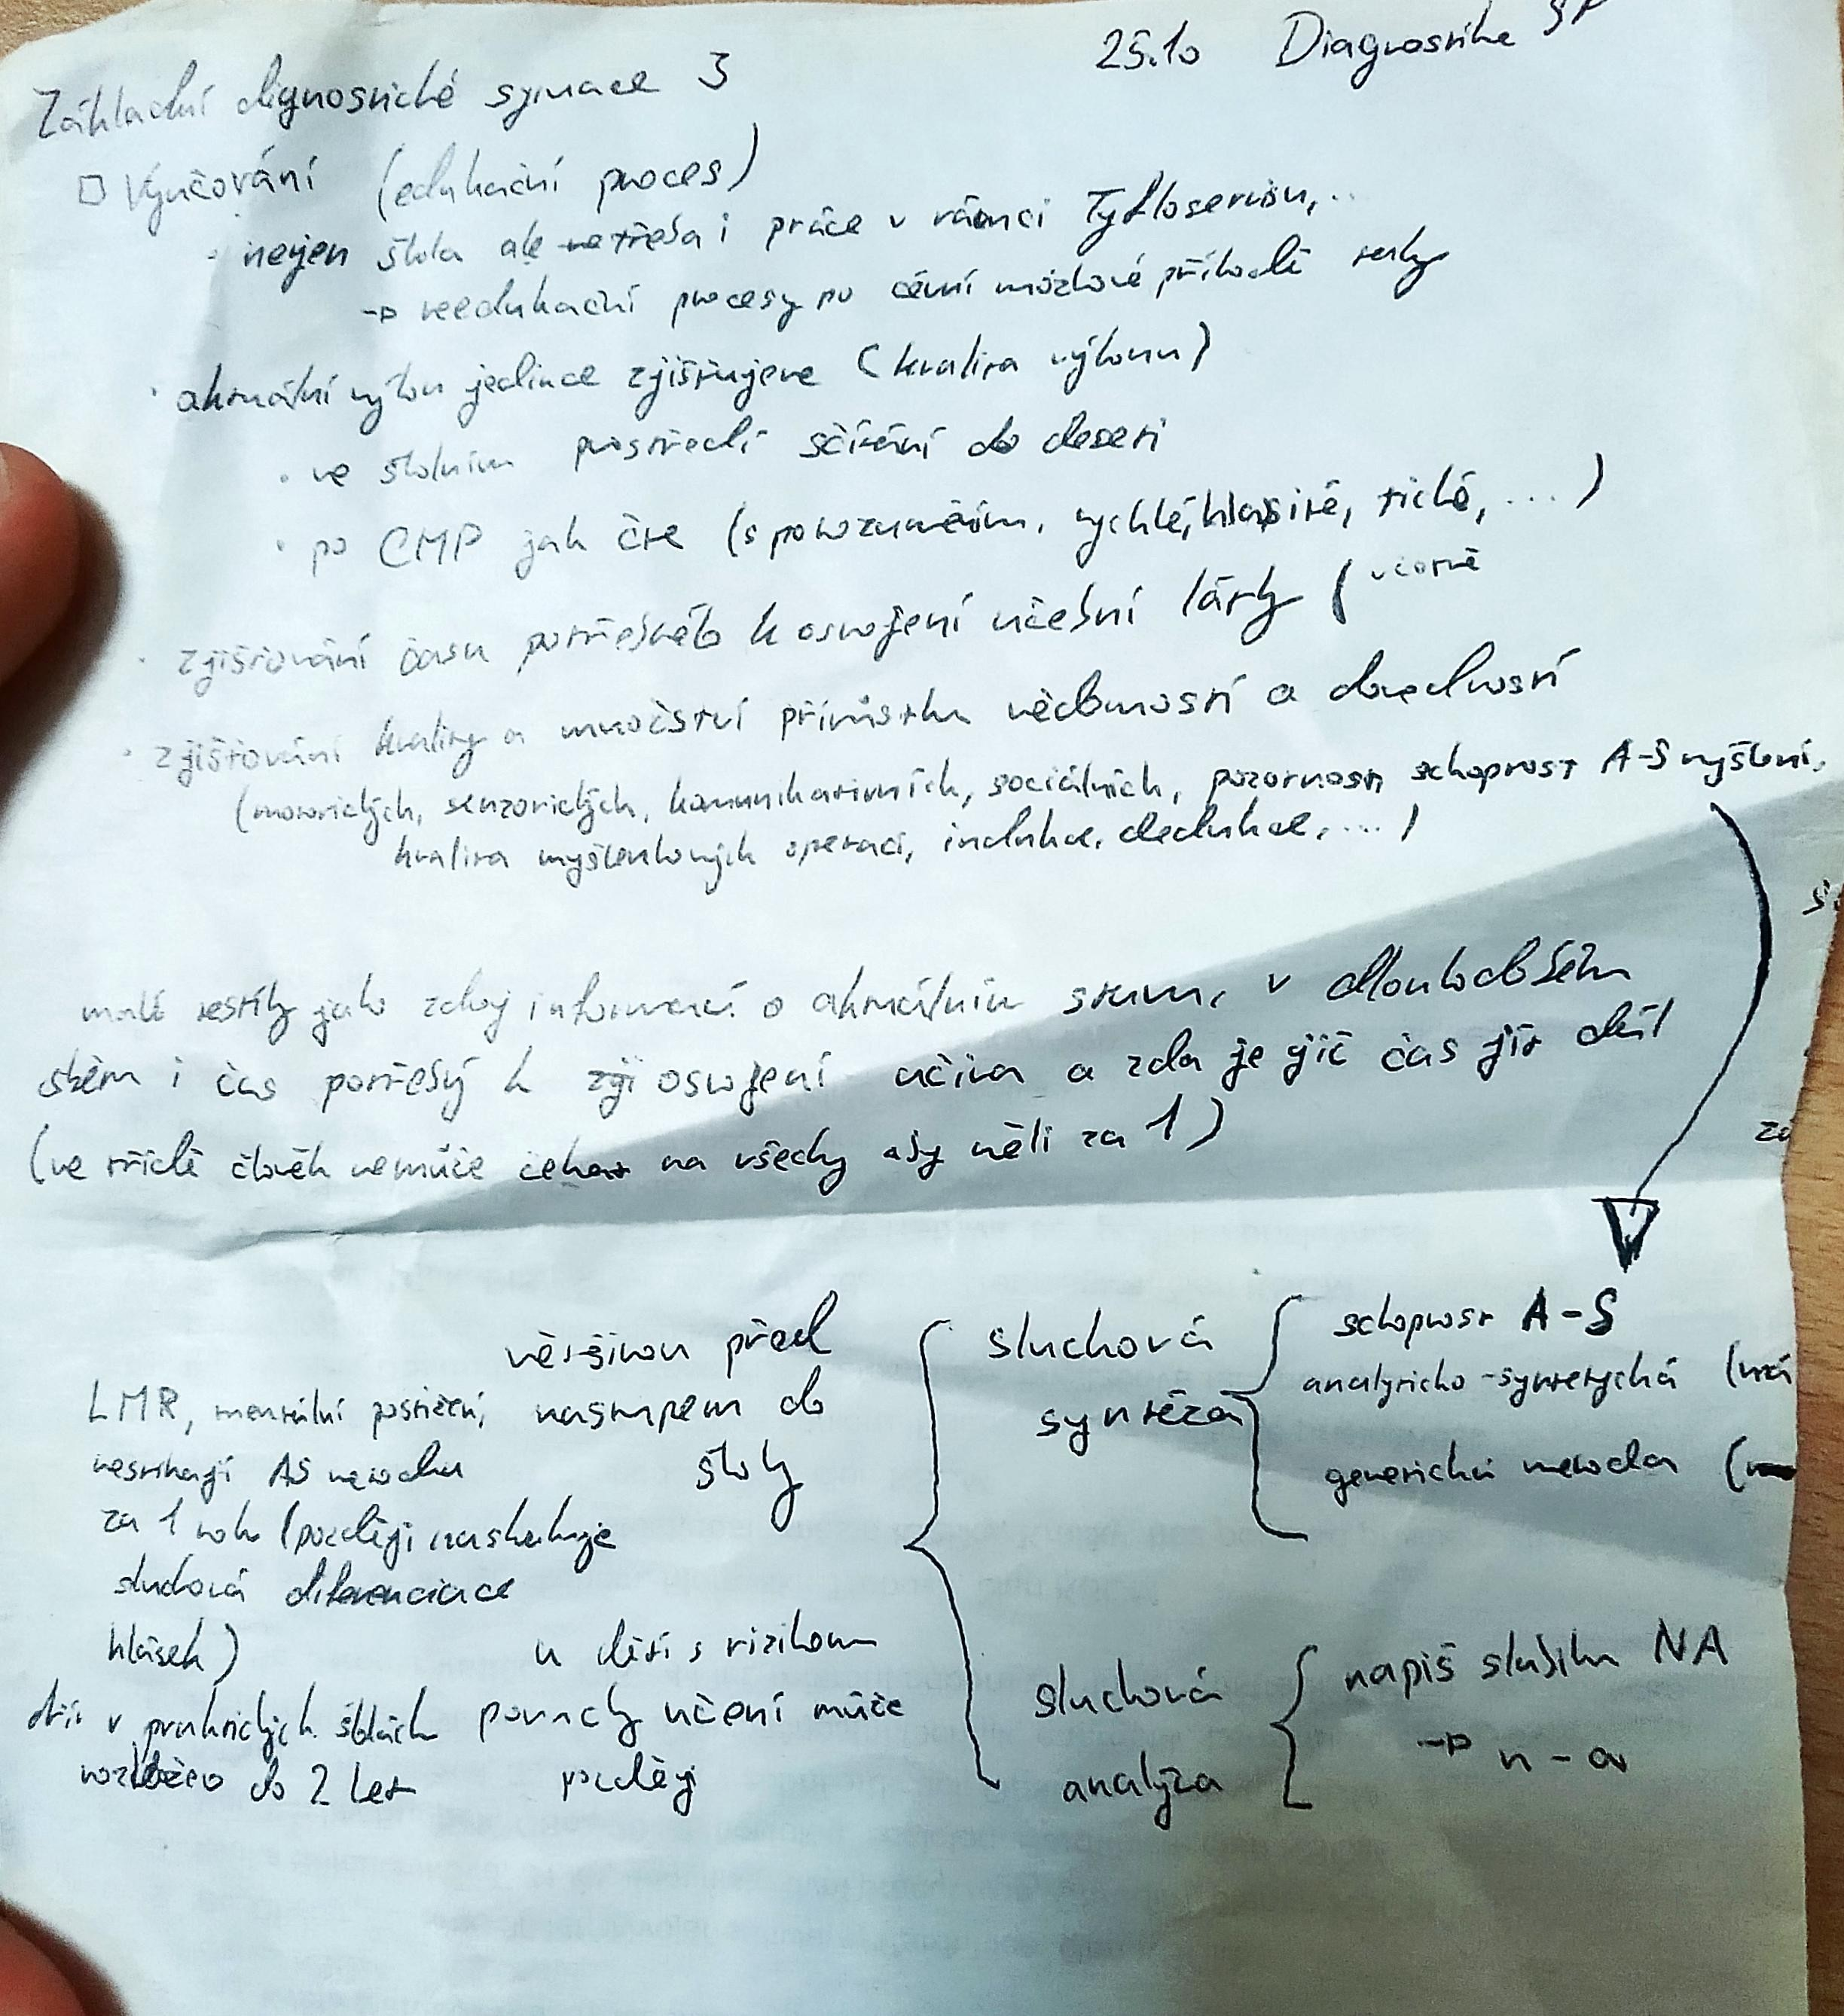 25.10 Diagnostika SP
Základní dignostické situace 3
Vyučování (edukační proces)
• nejen škola ale třeba i práce v rámci Tyfloservisu,..
→ reedukační procesy po cévní mozkové příhodě
• aktuální výkon jedince zjišťujeme (kvalita výkonu)
• ve školním prostředí sčítání do deseti
• po CMP jak čte (s porozuměním, rychlé, hlasité, tiché, ...)
• zjišťování času potřebného k osvojení učební látky (včetně
• zjišťování kvality a množství přírůstku vědomostí a dovedností
(motorických, senzorických, komunikativních, sociálních, pozornosti schopnost A-S myšlení,
kvalita myšlenkových operací, indukce, dedukce, ...)
malé testíky jako zdroj informací o aktuálním stavu, v dlouhodobém
i čas potřebný k osvojení učiva a zda je již čas jít dál
(ve třídě člověk nemůže čekat na všechy aby měli za 1)
většinou před
nastupem do
školy
LMR, mentální postižení,
nestíhají AS metodu
za 1 rok (později naskakuje
sluchová diferenciace
hlásek)
dřív v praktických školách
rozloženo do 2 let
u dětí s rizikem
poruchy učení může
později
sluchová
syntéza
schopnost A-S
analyticko-syntetychá
genetická metoda
sluchová
analýza
napiš slabiku NA
→ n - a